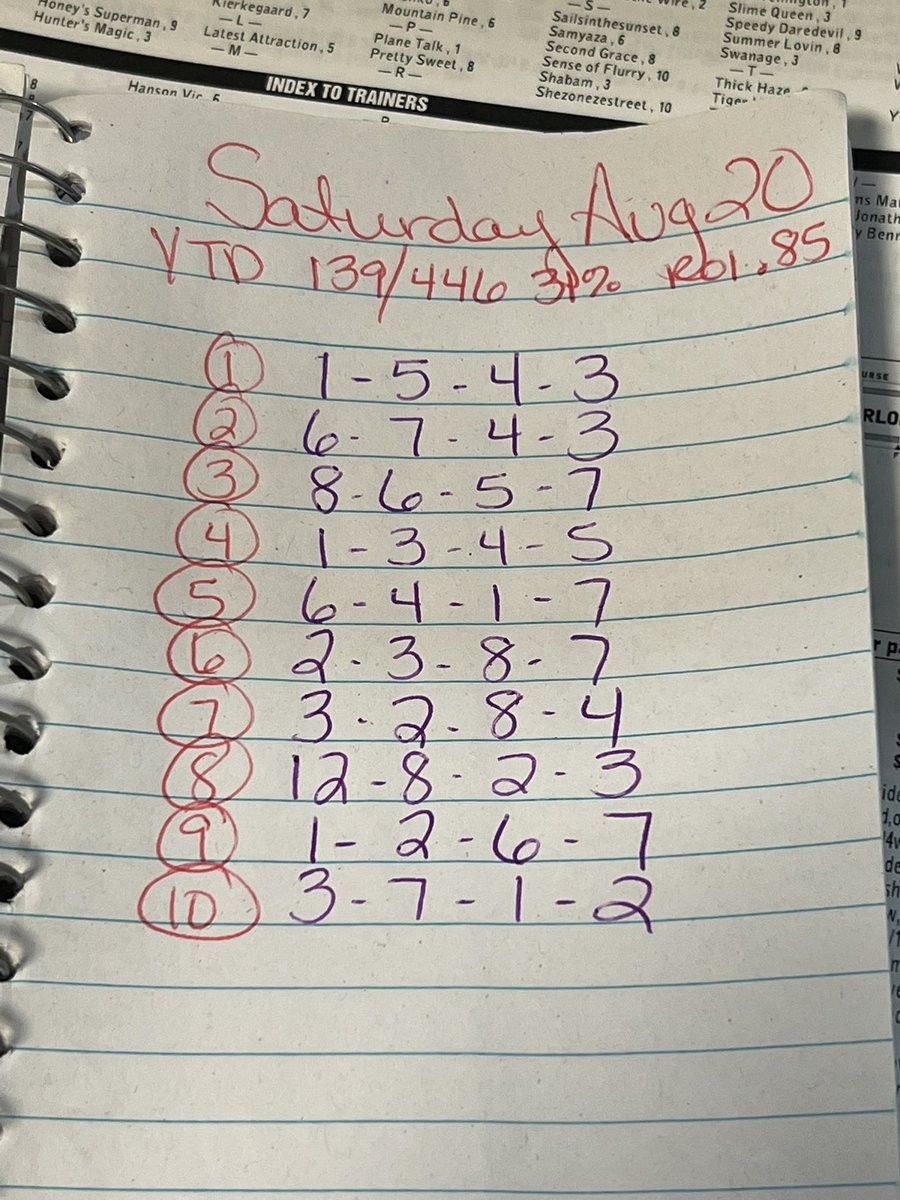 Honey's Superman, 9
Hunter's Magic, 3
Kierkegaard, 7
— L —
Latest Attraction, 5
— M —
Mountain Pine, 6
— P —
Plane Talk, 1
Pretty Sweet, 8
— R —
— S —
Sailsinthesunset, 8
Samyaza, 6
Second Grace, 8
Sense of Flurry, 10
Shabam, 3
Shezonezestreet, 10
Slime Queen, 3
Speedy Daredevil, 9
Summer Lovin, 8
Swanage, 3
— T —
Thick Haze
Hanson Vic, 6
INDEX TO TRAINERS
Saturday Aug 20
YTD 139/446 31% ROI .85
1 1-5-4-3
2 6-7-4-3
3 8-6-5-7
4 1-3-4-5
5 6-4-1-7
6 2-3-8-7
7 3-2-8-4
8 12-8-2-3
9 1-2-6-7
10 3-7-1-2